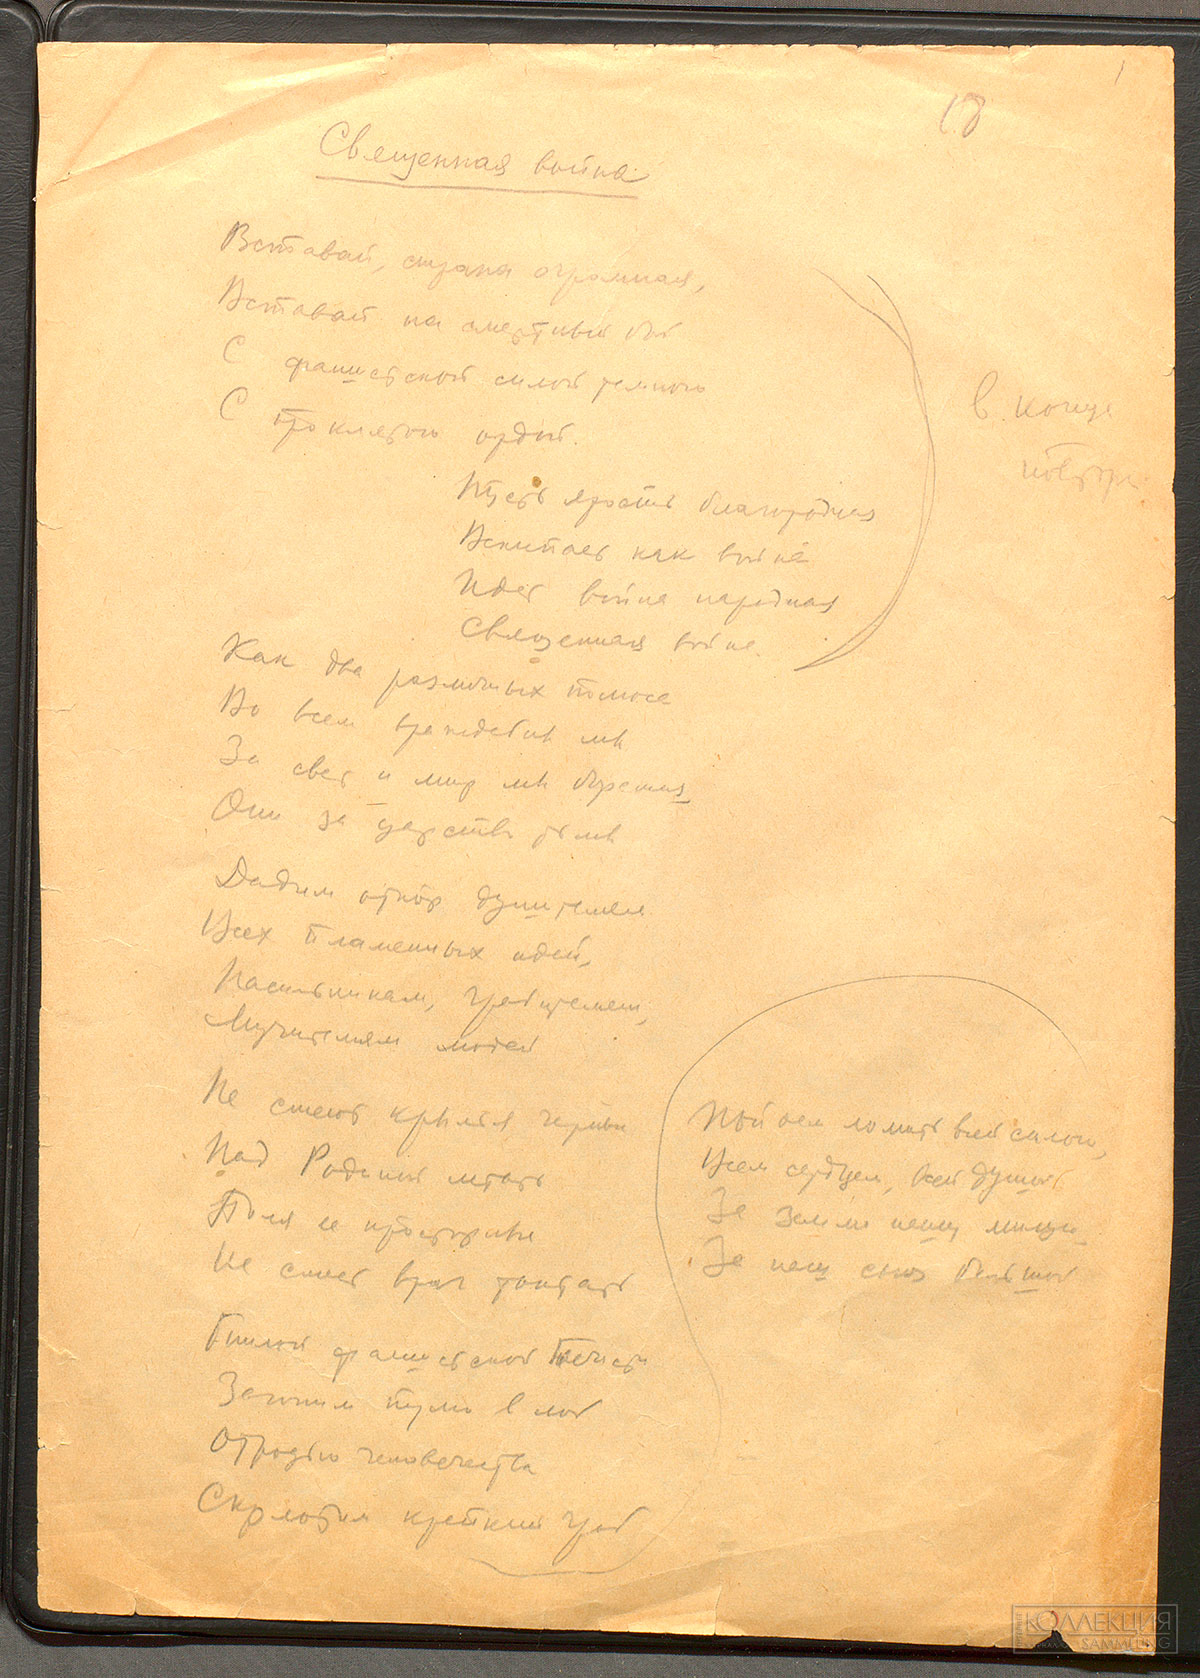 18
Священная война
Вставай, страна огромная,
Вставай на смертный бой
С фашистской силой темною
С проклятою ордой.
в конце
повтор.
Пусть ярость благородная
Вскипает как волна
Идет война народная
Священная война.
Как два различных полюса
Во всем враждебны мы
За свет и мир мы боремся
Они за царство тьмы
Дадим отпор душителям
Всех пламенных идей,
Насильникам, грабителям,
Мучителям людей
Не смеют крылья черные
Над Родиной летать
Поля ее просторные
Не смеет враг топтать
Пойдем ломить всей силою,
Всем сердцем, всей душой
За землю нашу милую
За наш союз большой
Гнилой фашистской нечисти
Загоним пулю в лоб
Отродью человечества
Сколотим крепкий гроб
КОЛЛЕКЦИЯ
SAMMLUNG